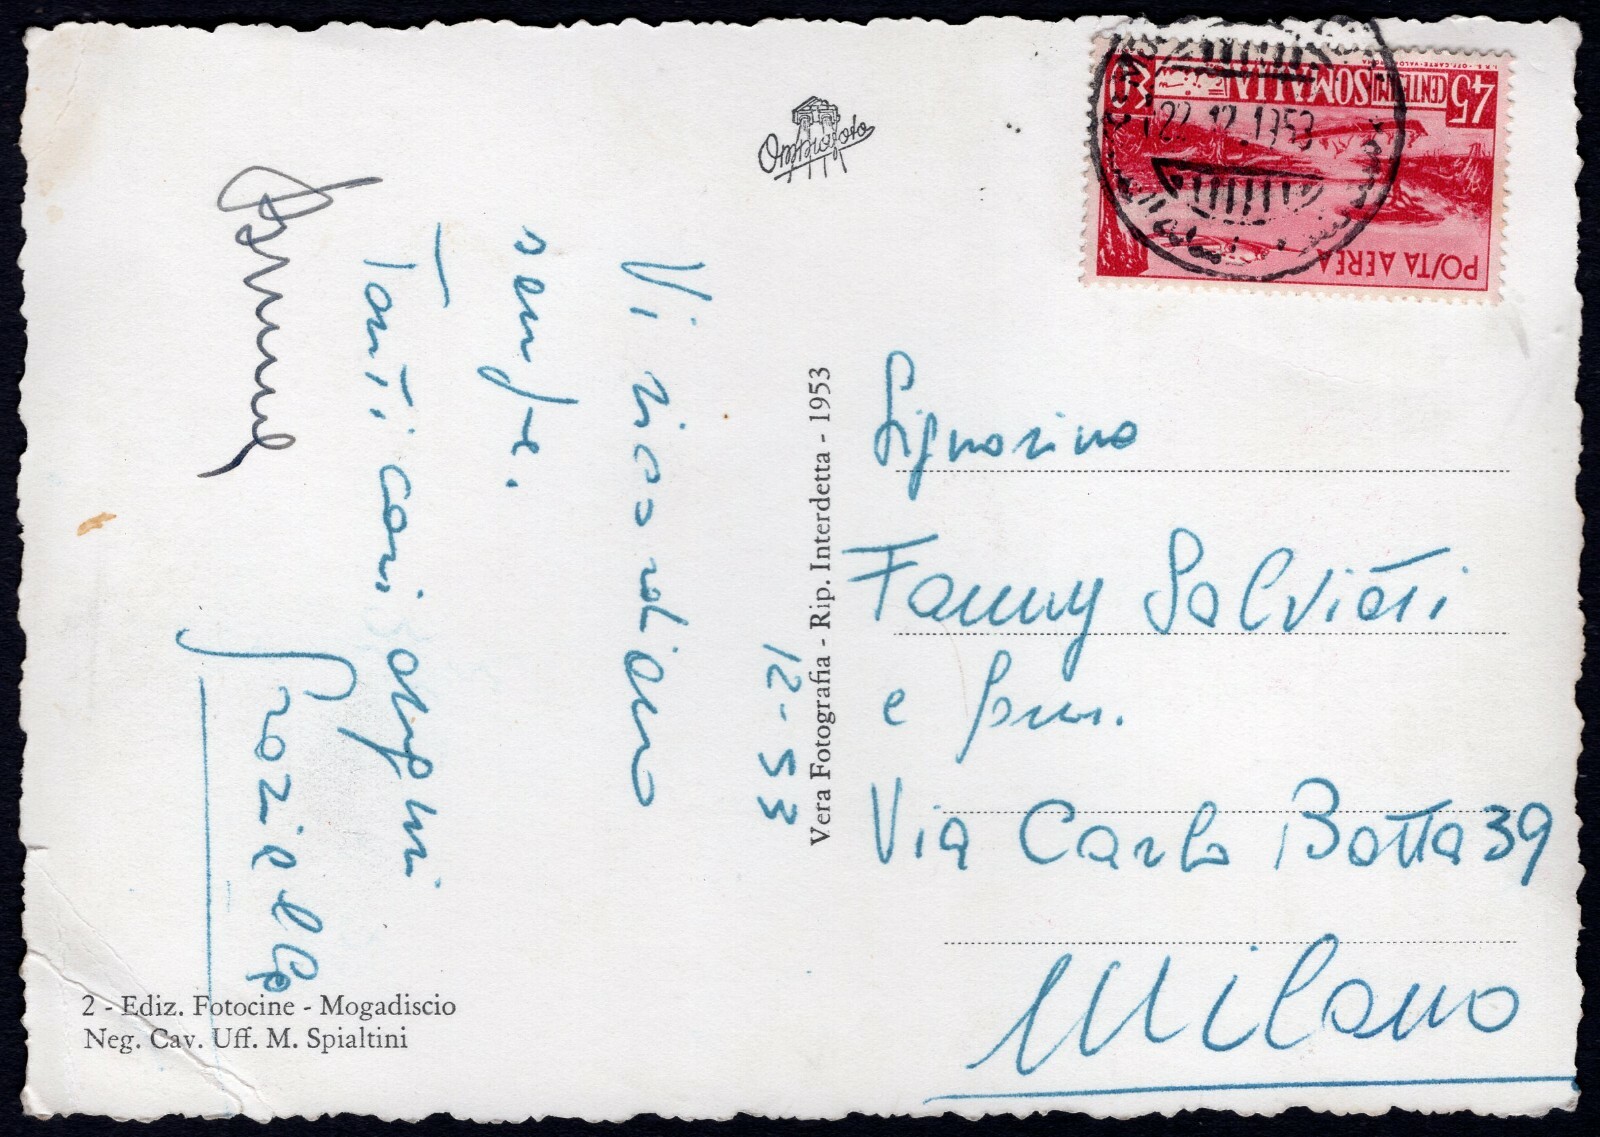 12-53
Vi ricordiamo
sempre.
Tanti cari auguri
Graziella
2 - Ediz. Fotocine - Mogadiscio
Neg. Cav. Uff. M. Spialtini
Vera Fotografia - Rip. Interdetta - 1953
Omniafoto
45
CENTESIMI
SOMALIA
POSTA AEREA
22.12.1953
Signorina
Fanny Salviati
e fam.
Via Carlo Botta 39
Milano